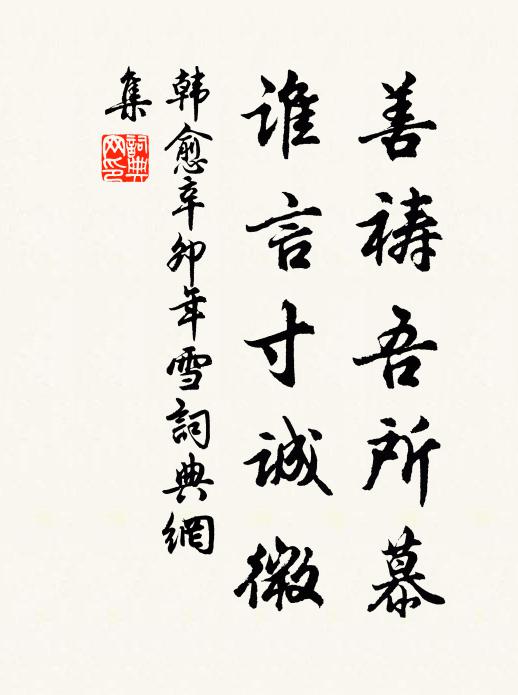 善祷吾所慕
谁言寸诚微
韩愈辛卯年雪詞典網
集
詞典网印